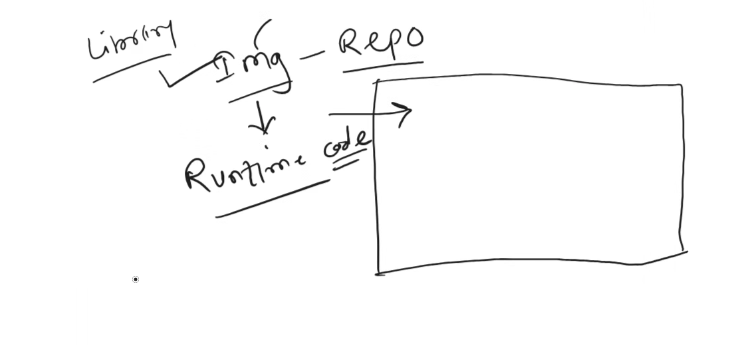 Library
Img - Repo
Runtime code